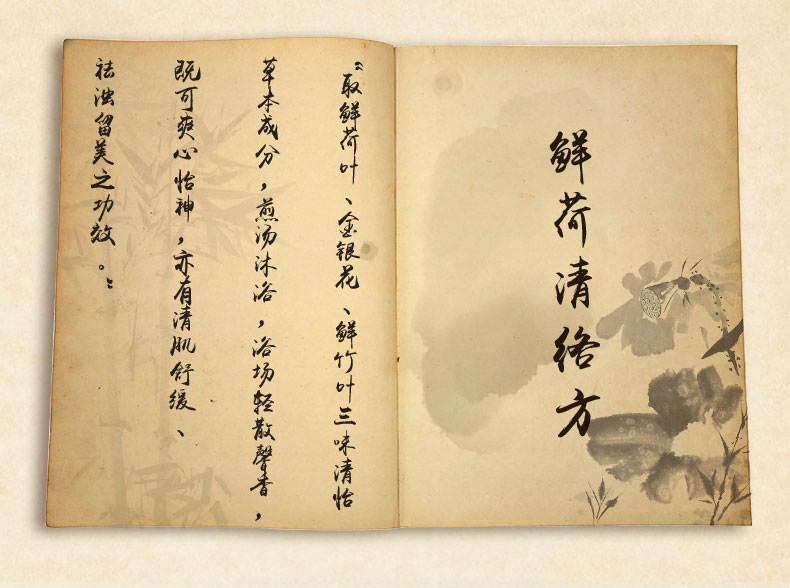 鲜荷清络方
“取鲜荷叶、金银花、鲜竹叶三味清怡
草本成分，煎汤沐浴，浴场轻散馨香，
既可爽心怡神，亦有清肌舒缓、
祛浊留美之功效。”